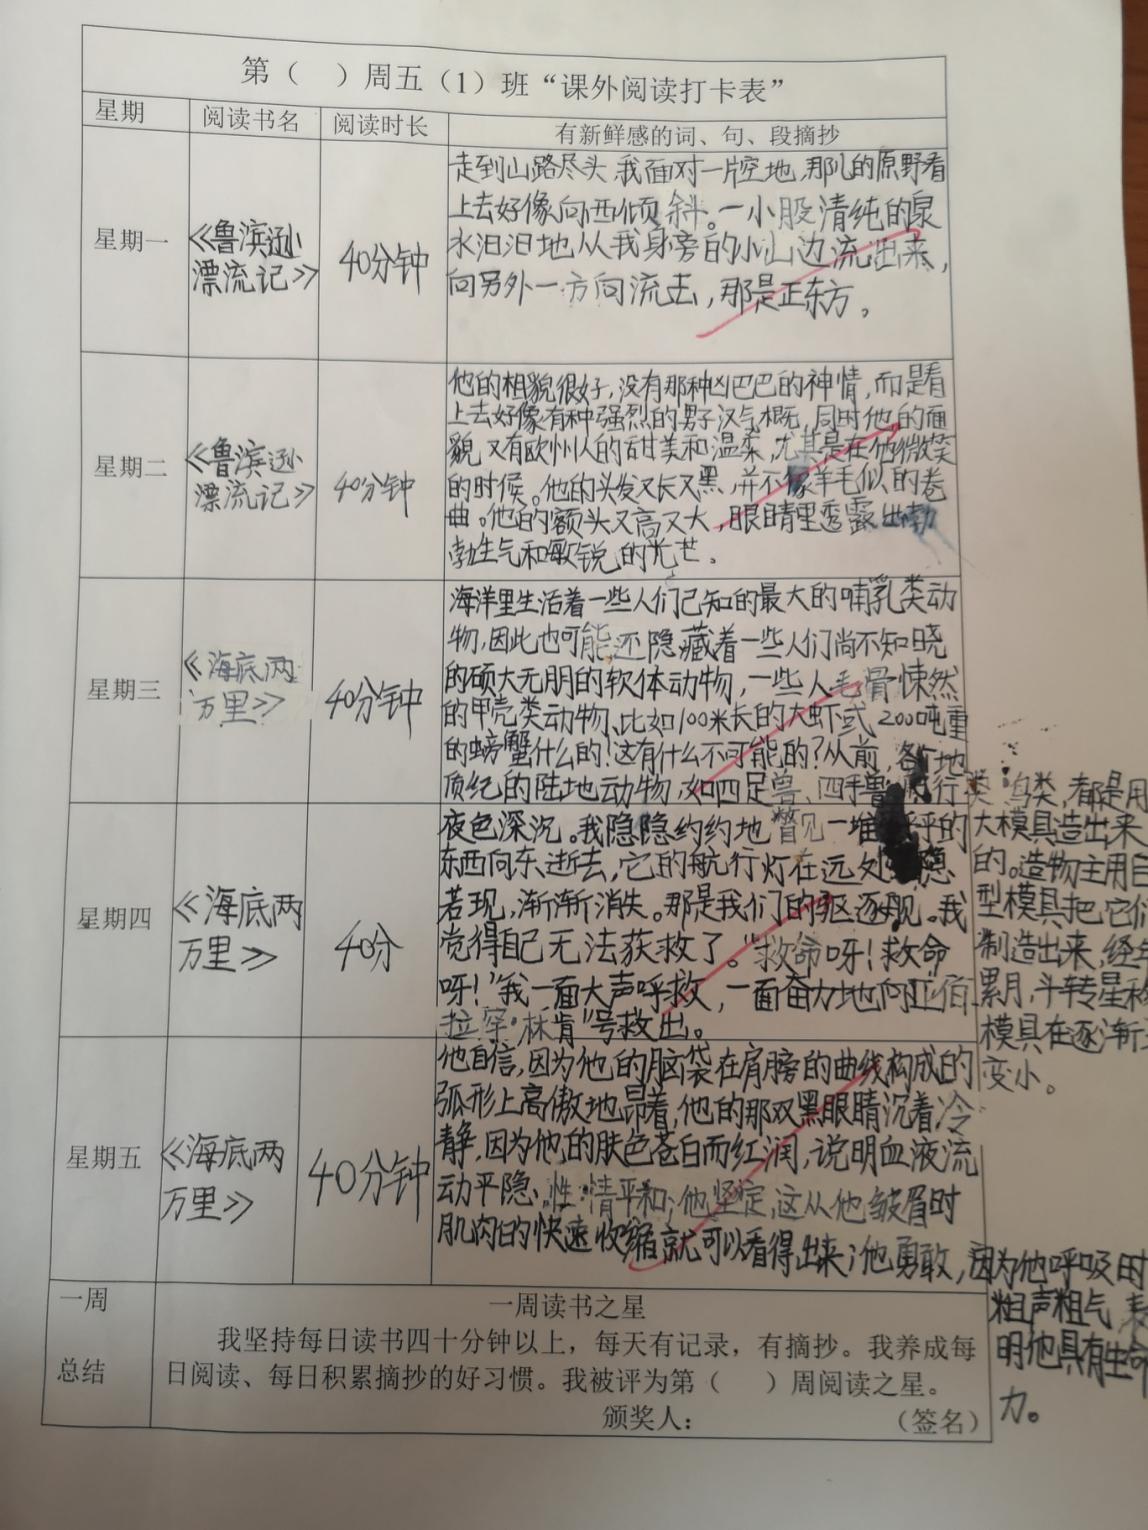 第（ ）周五（1）班“课外阅读打卡表”
星期 阅读书名 阅读时长 有新鲜感的词、句、段摘抄
星期一
《鲁滨逊
漂流记》
40分钟
走到山路尽头,我面对一片空地,那儿的原野看
上去好像向西倾斜。一小股清纯的泉
水汩汩地从我身旁的小山边流出来,
向另外一方向流去,那是正东方。
星期二
《鲁滨逊
漂流记》
40分钟
他的相貌很好,没有那种凶巴巴的神情,而是看
上去好像有种强烈的男子汉气概,同时他的面
貌又有欧州人的甜美和温柔,尤其是在他微笑
的时候。他的头发又长又黑,并不像羊毛似的卷
曲。他的额头又高又大,眼睛里透露出勃
勃生气和敏锐的光芒。
星期三
《海底两
万里》
40分钟
海洋里生活着一些人们己知的最大的哺乳类动
物,因此也可能还隐藏着一些人们尚不知晓
的硕大无朋的软体动物,一些人毛骨悚然
的甲壳类动物、比如100米长的大虾或200吨重
的螃蟹什么的!这有什么不可能的?从前,各地
质纪的陆地动物,如四足兽、四手兽 爬行类 鸟类,都是用
大模具造出来
的。造物主用巨
型模具把它们
制造出来,经年
累月,斗转星移
模具在逐渐
变小。
星期四
《海底两
万里》
40分
夜色深沉。我隐隐约约地瞥见一堆 乎的
东西向东逝去,它的航行灯在远处 隐
若现,渐渐消失。那是我们的驱逐舰。我
觉得自己无法获救了。“救命呀!救命
呀!”我一面大声呼救,一面奋力地向亚伯
拉罕·林肯”号救出。
星期五
《海底两
万里》
40分钟
他自信,因为他的脑袋在肩膀的曲线构成的
弧形上高傲地昂着,他的那双黑眼睛沉着冷
静,因为他的肤色苍白而红润,说明血液流
动平隐、性·情平和;他坚定,这从他皱眉时
肌肉的快速收缩就可以看得出来;他勇敢,因为他呼吸时
粗声粗气 表
明他具有生命
力。
一周
总结
一周读书之星
我坚持每日读书四十分钟以上，每天有记录，有摘抄。我养成每
日阅读、每日积累摘抄的好习惯。我被评为第（ ）周阅读之星。
颁奖人： （签名）